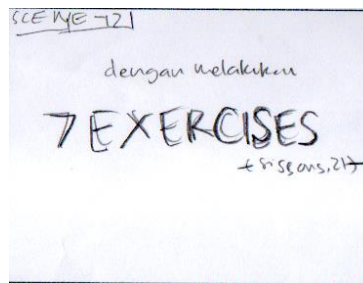 SCENE 721
dengan melakukan
7 EXERCISES